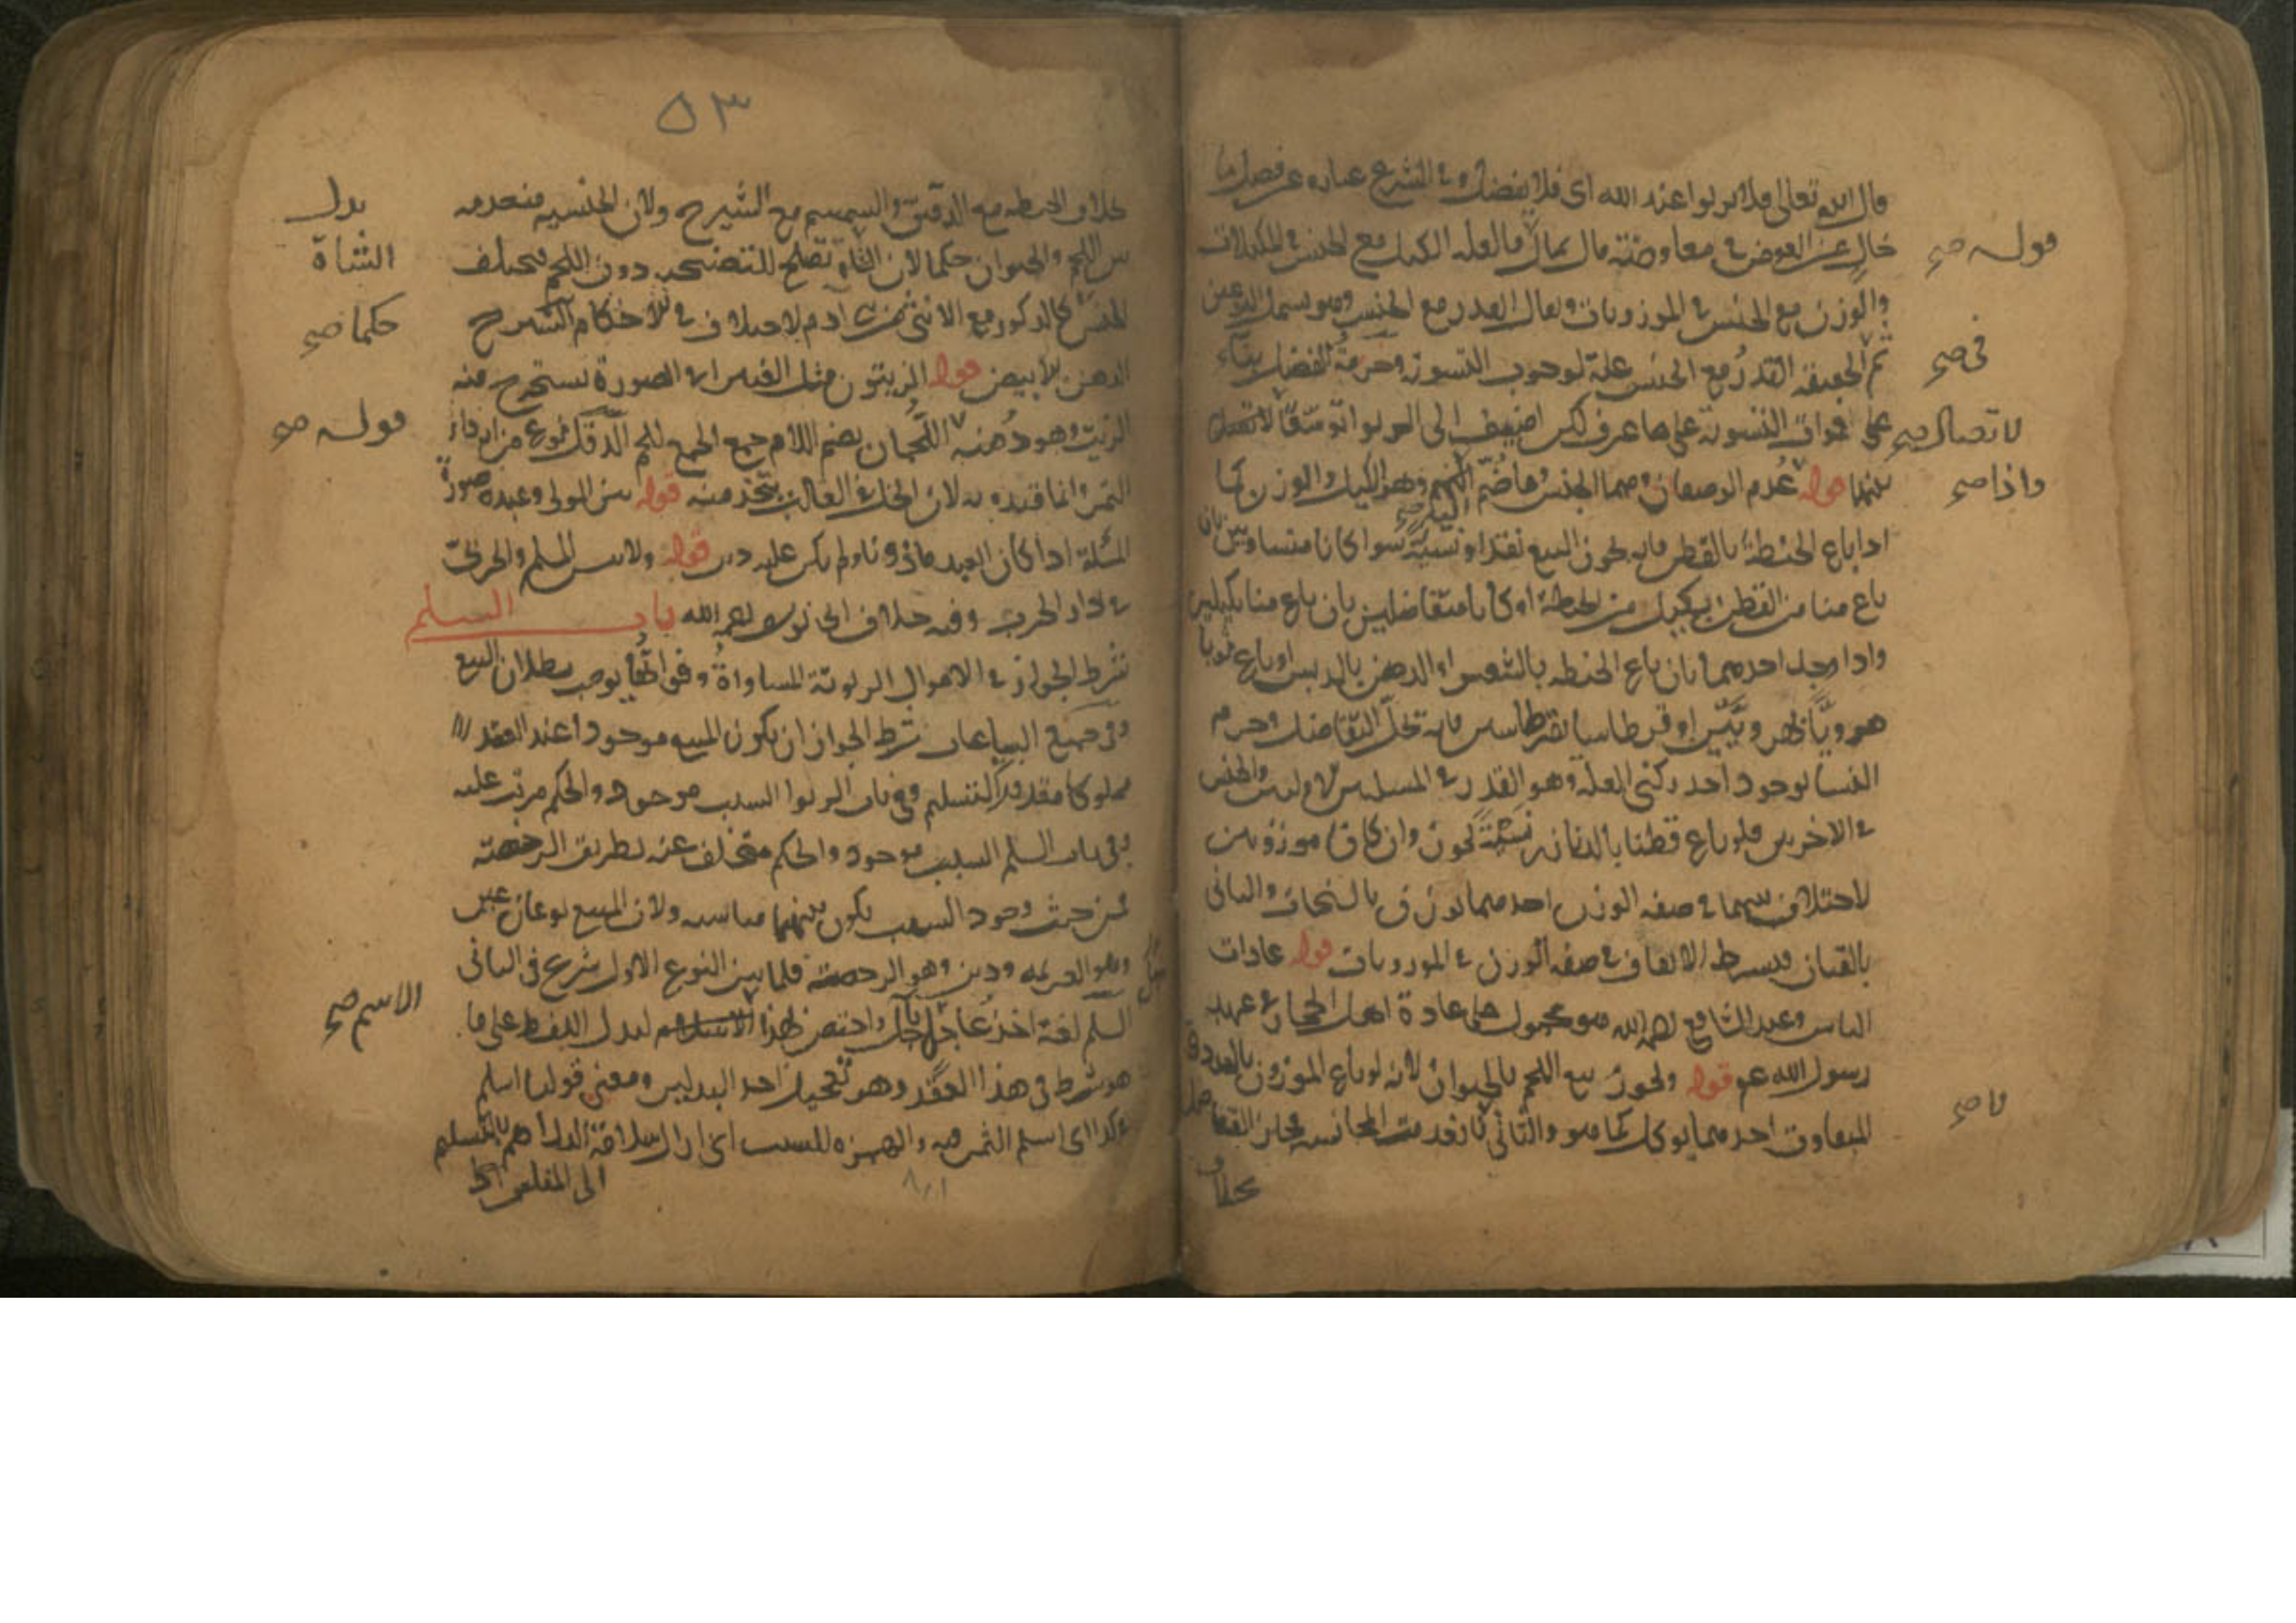 قال الله تعالى فلا يربوا عند الله اى فلا يفضل وفي الشرع عبارة عن فضل ما
خال عن العوض في معاوضة مال بمال فالعلة الكيل مع الجنس في المكيلات
قوله صح
والوزن مع الجنس في الموزونات ويقال القدر مع الجنس وهو يشمل النوعين
ثم الحقيقة القدر مع الجنس علة لوجوب التسوية وحرمة الفضل بناء
في صح
على فوات التسوية على ما عرف لكن اضيف الى الربوا
لاتصال صح
بينهما قوله عدم الوصفان وهما الجنس وما ضم اليه وهو الكيل والوزن كما
واذا صح
اذا باع الحنطة بالقطن فانه يجوز البيع نقدا ونسيئة سوا كانا متساويين بان
باع منا من القطن بكيل من الحنطة او كانا متفاضلين بان باع منا بكيلين
واذا وجد احدهما بان باع الحنطة بالشعير او الدهن بالدبس او باع ثوبا
هرويا بهرويين او قرطاسا بقرطاسين فانه تحل التفاضل وحرم
النسا لوجود احد ركني العلة وهو القدر في المسلتين الاوليين والجنس
في الاخريين فلو باع قطنا بالدنانير نسيئة يجوز وان كانا موزونين
لاختلافهما في صفة الوزن احدهما يوزن بالسنجات والثاني
بالقبان ويشترط الاتفاق في صفة الوزن في الموزونات قوله عادات
الناس وعند الشافعي رحمه الله هو محمول على عادة اهل الحجاز في عهد
رسول الله عم قوله ويجوز بيع اللحم بالحيوان لانه لو باع الموزون بالعددي
المتفاوت احدهما يوكل كما هو والثاني لا فعدمت المجانسة فجاز التفاضل
لا صح
بخلاف
٥٣
بخلاف الحنطة مع الدقيق والسمسم مع الشيرج ولان الجنسية منعدمة
بين اللحم والحيوان حكما لان الشاة تصلح للتضحية دون اللحم فيختلف
بدل
الشاة
الجنس كالذكور مع الانثى من بني ادم لاختلاف في الاحكام الشيرج
حكما صح
الدهن الابيض قوله الزيتون مثل الغبيراء في الصورة يستخرج منه
الزيت وهو دهنه اللحمان بضم اللام جمع الجمع للحم الدقل نوع من اردأ
قوله صح
التمر وانما قيده به لان الخل في الغالب يتخذ منه قوله بين المولى وعبده صورة
المسئلة اذا كان العبد ماذونا ولم يكن عليه دين قوله ولا بين المسلم والحربي
في دار الحرب وفيه خلاف ابي يوسف رحمه الله باب السلم
شرط الجواز في الاموال الربوية المساواة وفواتها يوجب بطلان البيع
وفي جميع البياعات شرط الجواز ان يكون المبيع موجودا عند العقد
مملوكا مقدور التسليم وفي باب الربوا السبب موجود والحكم مرتب عليه
وفي باب السلم السبب موجود والحكم متخلف عنه بطريق الرخصة
فمن حيث وجود السبب يكون بينهما مناسبة ولان المبيع نوعان عين
وهو العزيمة ودين وهو الرخصة فلما بين النوع الاول شرع في الثاني
السلم لغة اخذ عاجل بآجل واختص لهذا الاسم ليدل اللفظ على ما
الاسم صح
هو شرط في هذا العقد وهو تعجيل احد البدلين ومعنى قولنا اسلم
في كذا اى اسلم الثمن فيه والهمزة للسلب اى ازال سلامة الدراهم بالتسليم
الى المفلس